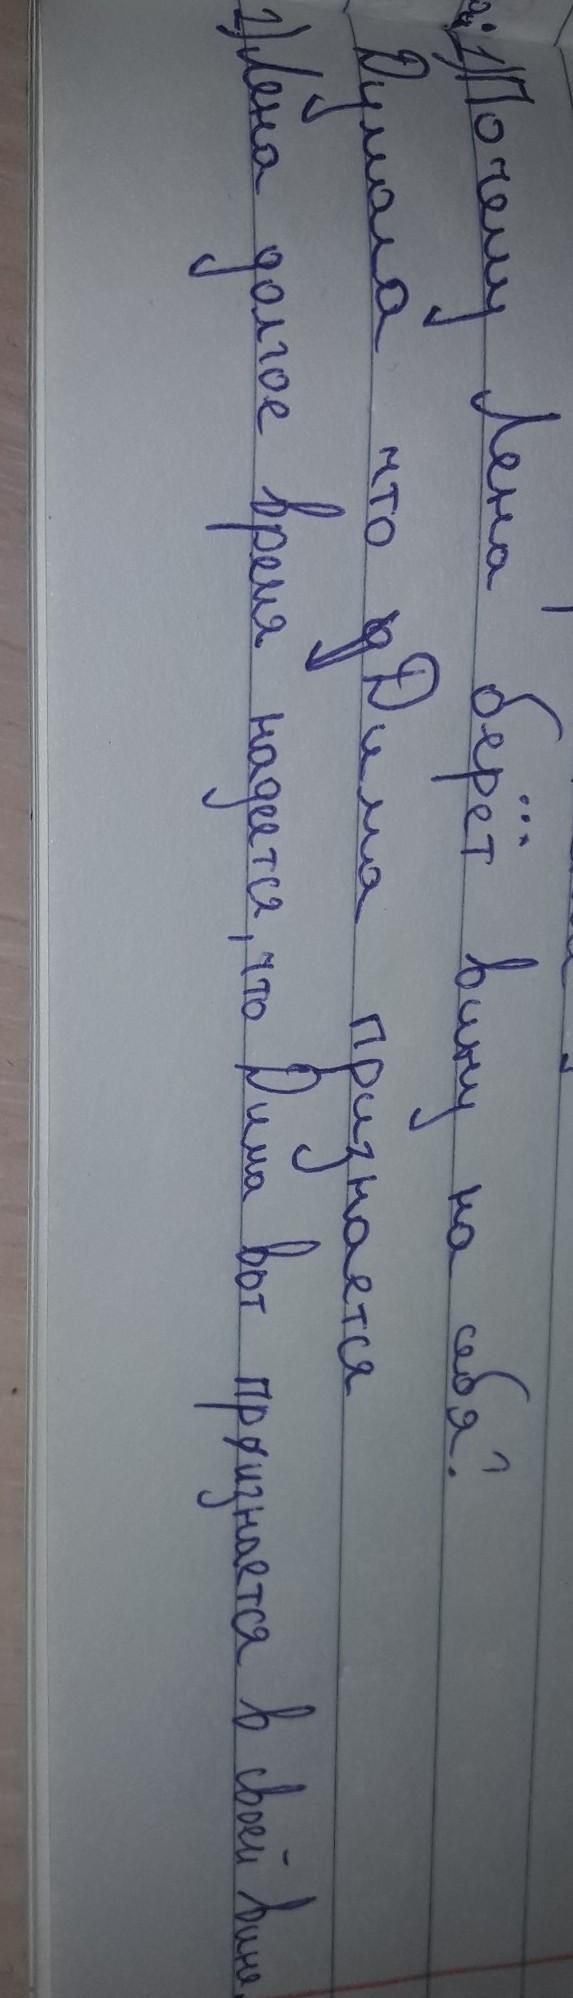 1) Почему Лена берёт вину на себя?
Думала что Дима признается
1) Лена долгое время надеется, что Дима вот признается в своей вине.